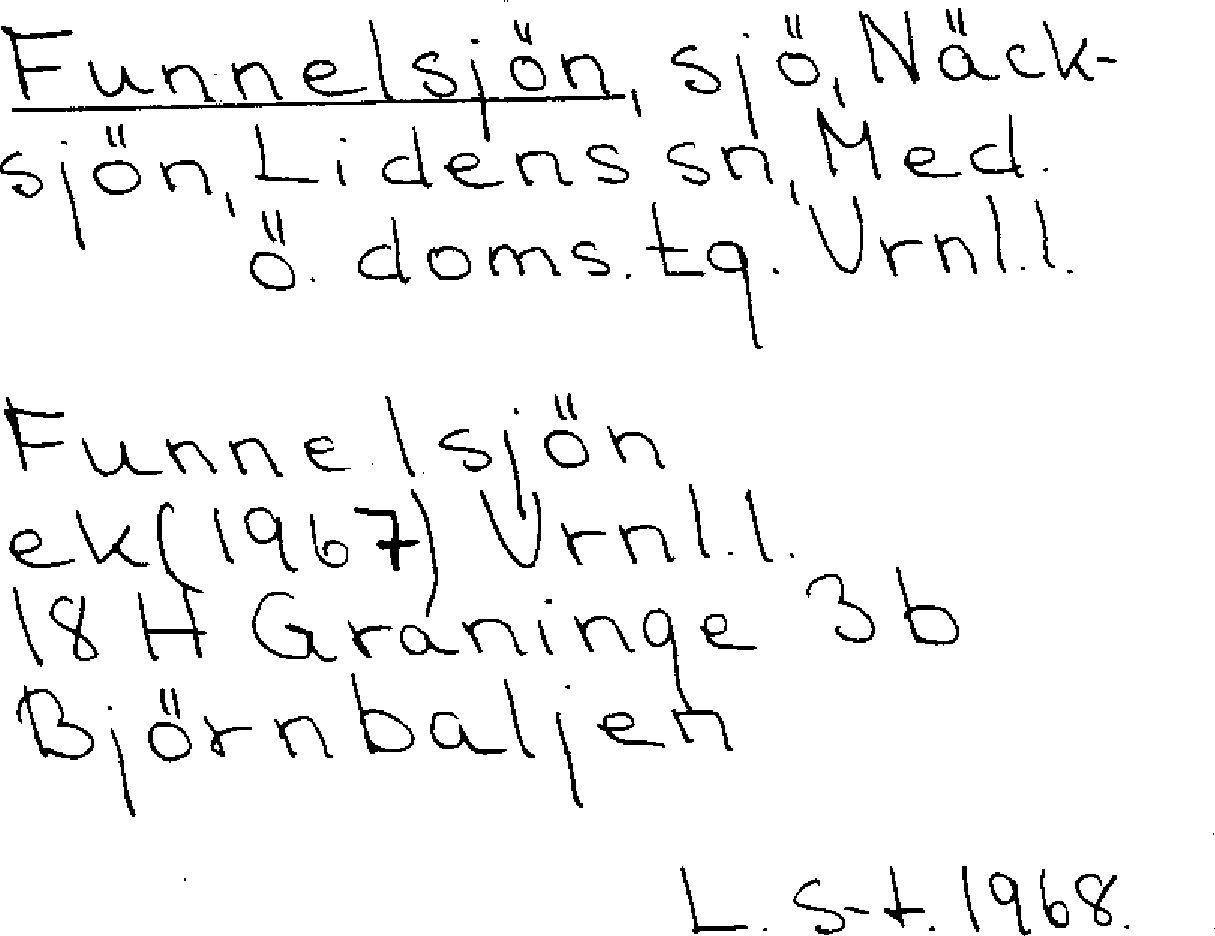 Funnelsjön, sjö, Näck-
sjön, Lidens sn, Med.
ö. doms. tg. Vrnl.l.
Funnelsjön
ek (1967) Vrnl.l.
18 H Graninge 3b
Björnbaljen
L. S-t. 1968.